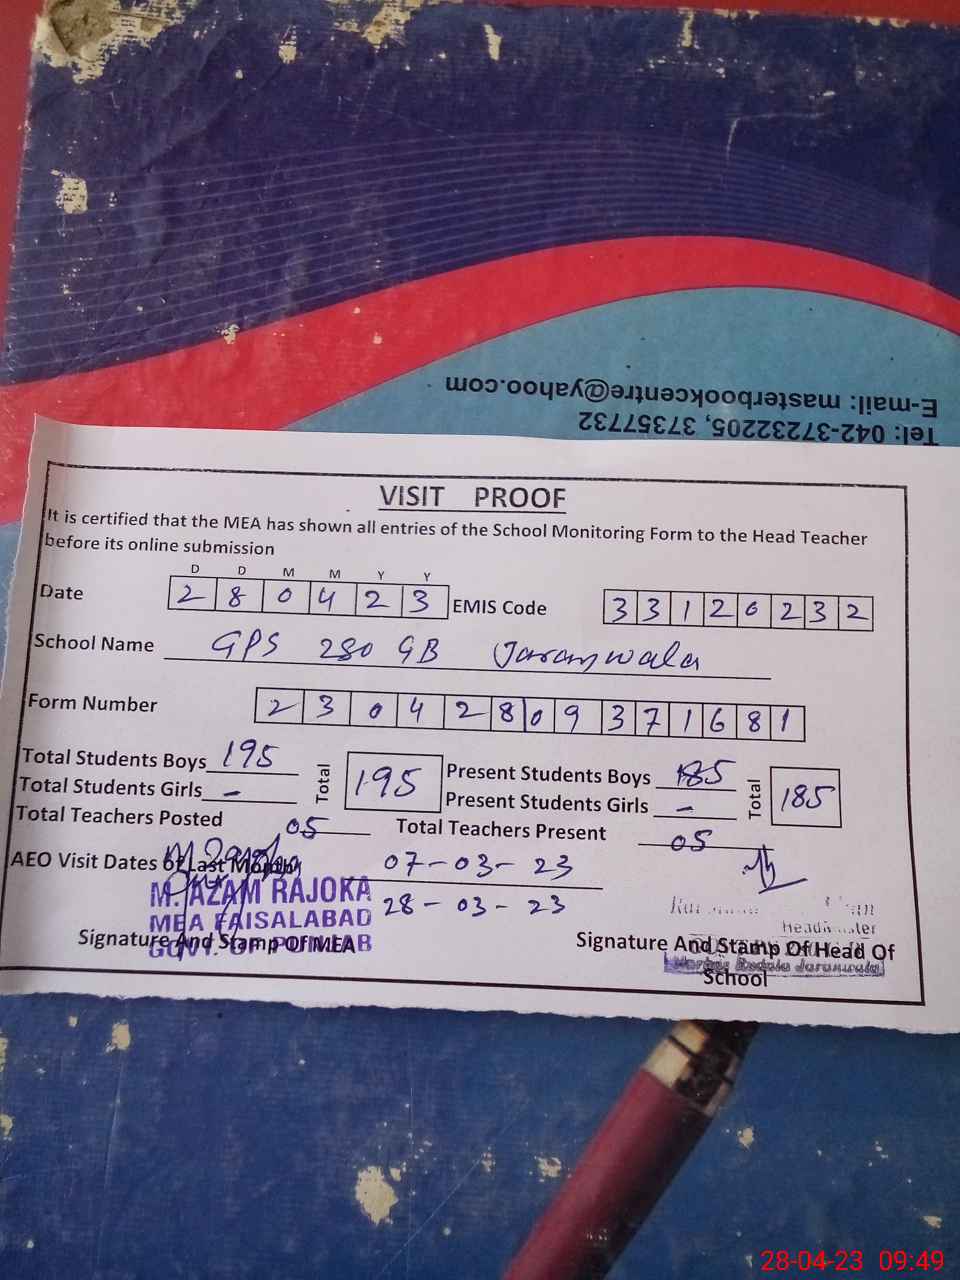 E-mail: masterbookcentre@yahoo.com
Tel: 042-37232205, 37357732
VISIT PROOF
It is certified that the MEA has shown all entries of the School Monitoring Form to the Head Teacher
before its online submission
D D M M Y Y
Date 2 8 0 4 2 3 EMIS Code 3 3 1 2 0 2 3 2
School Name GPS 280 GB Jaranwala
Form Number 2 3 0 4 2 8 0 9 3 7 1 6 8 1
Total Students Boys 195 Total 195 Present Students Boys 185 Total 185
Total Students Girls - Present Students Girls -
Total Teachers Posted 05 Total Teachers Present 05
AEO Visit Dates of Last Month 07-03-23
28-03-23
M. AZAM RAJOKA
MEA FAISALABAD
GOVT. OF PUNJAB
Signature And Stamp Of MEA
Headmaster
Signature And Stamp Of Head Of
School
Jaranwala
28-04-23 09:49